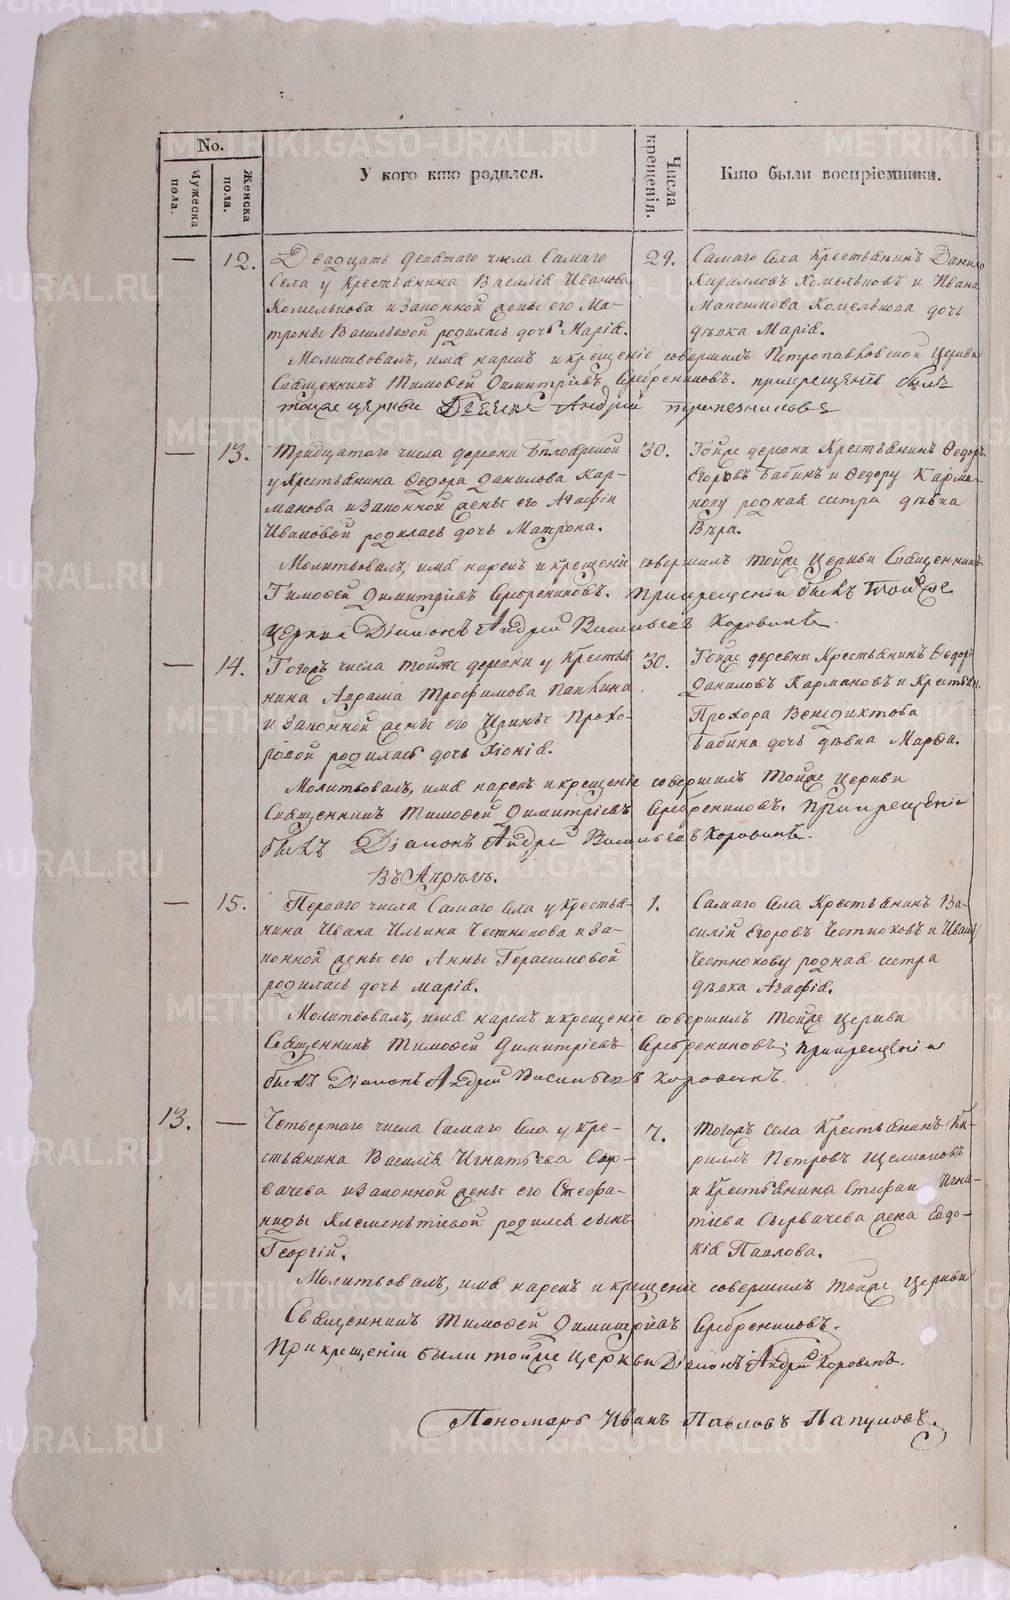 No.
Мужеска пола.
Женска пола.
У кого кто родился.
Числа крещенія.
Кто были воспріемники.
— 12.
Двадцать девятаго числа Самаго
Села у Крестьянина Василія Иванова
и законной жены его Ма-
троны Васильевой родилась дочь Марія.
29.
Самаго Села Крестьянинъ Данило
Кирилловъ и Ивана
Максимова дочь
дѣвка Марія.
Молитвовалъ, имя нарекъ и крещеніе совершилъ Петропавловской Церкви
Священникъ Тимоѳей Димитріевъ Серебрениковъ. при крещеніе былъ
тойже церкви Андрей
— 13.
Тридцатаго числа деревни
у Крестьянина Ѳедора Данилова Кар-
манова и законной жены его Агафіи
Ивановой родилась дочь Матрона.
30.
Тойже деревни Крестьянинъ Ѳедоръ
Егоровъ Бабинъ и Ѳедору Карма-
нову родная сестра дѣвка
Вѣра.
Молитвовалъ, имя нарекъ и крещеніе совершилъ тойже Церкви Священникъ
Тимоѳей Димитріевъ Серебрениковъ. При крещеніи былъ тойже
Церкви Діаконъ Андрей Васильевъ Коровинъ.
— 14.
Тогожъ числа тойже деревни у Крестья-
нина Аврама Трофимова
и законной жены его Ирины Прохо-
ровой родилась дочь Хіонія.
30.
Тойже деревни Крестьянинъ Ѳедоръ
Даниловъ Кармановъ и Крестьян.
Прохора Венедиктова
Бабина дочь дѣвка Марѳа.
Молитвовалъ, имя нарекъ и крещеніе совершилъ тойже Церкви
Священникъ Тимоѳей Димитріевъ Серебрениковъ. При крещеніе
былъ Діаконъ Андрей Васильевъ Коровинъ.
Въ Апрѣлѣ.
— 15.
Перваго числа Самаго Села у Крестья-
нина Ивана Ильина Чеснокова и за-
конной жены его Анны Герасимовой
родилась дочь Марія.
1.
Самаго Села Крестьянинъ Ва-
силій Егоровъ Чесноковъ и Ивану
Чеснокову родная сестра
дѣвка Агафія.
Молитвовалъ, имя нарекъ и крещеніе совершилъ тойже Церкви
Священникъ Тимоѳей Димитріевъ Серебрениковъ; при крещеніи
былъ Діаконъ Андрей Васильевъ Коровинъ.
13. —
Четвертаго числа Самаго Села у Кре-
стьянина Василія Игнатьева Сыр-
вачева и законной жены его Стефа-
ниды Клементіевой родился сынъ
Георгій.
7.
Тогожъ села Крестьянинъ Ки-
риллъ Петровъ
и Крестьянина Стефана Игна-
тіева Сырвачева жена Евдо-
кія Павлова.
Молитвовалъ, имя нарекъ и крещеніе совершилъ тойже Церкви
Священникъ Тимоѳей Димитріевъ Серебрениковъ.
При крещеніи были тойже Церкви Діаконъ Андрей Коровинъ.
Пономарь Иванъ Павловъ
METRIKI.GASO-URAL.RU